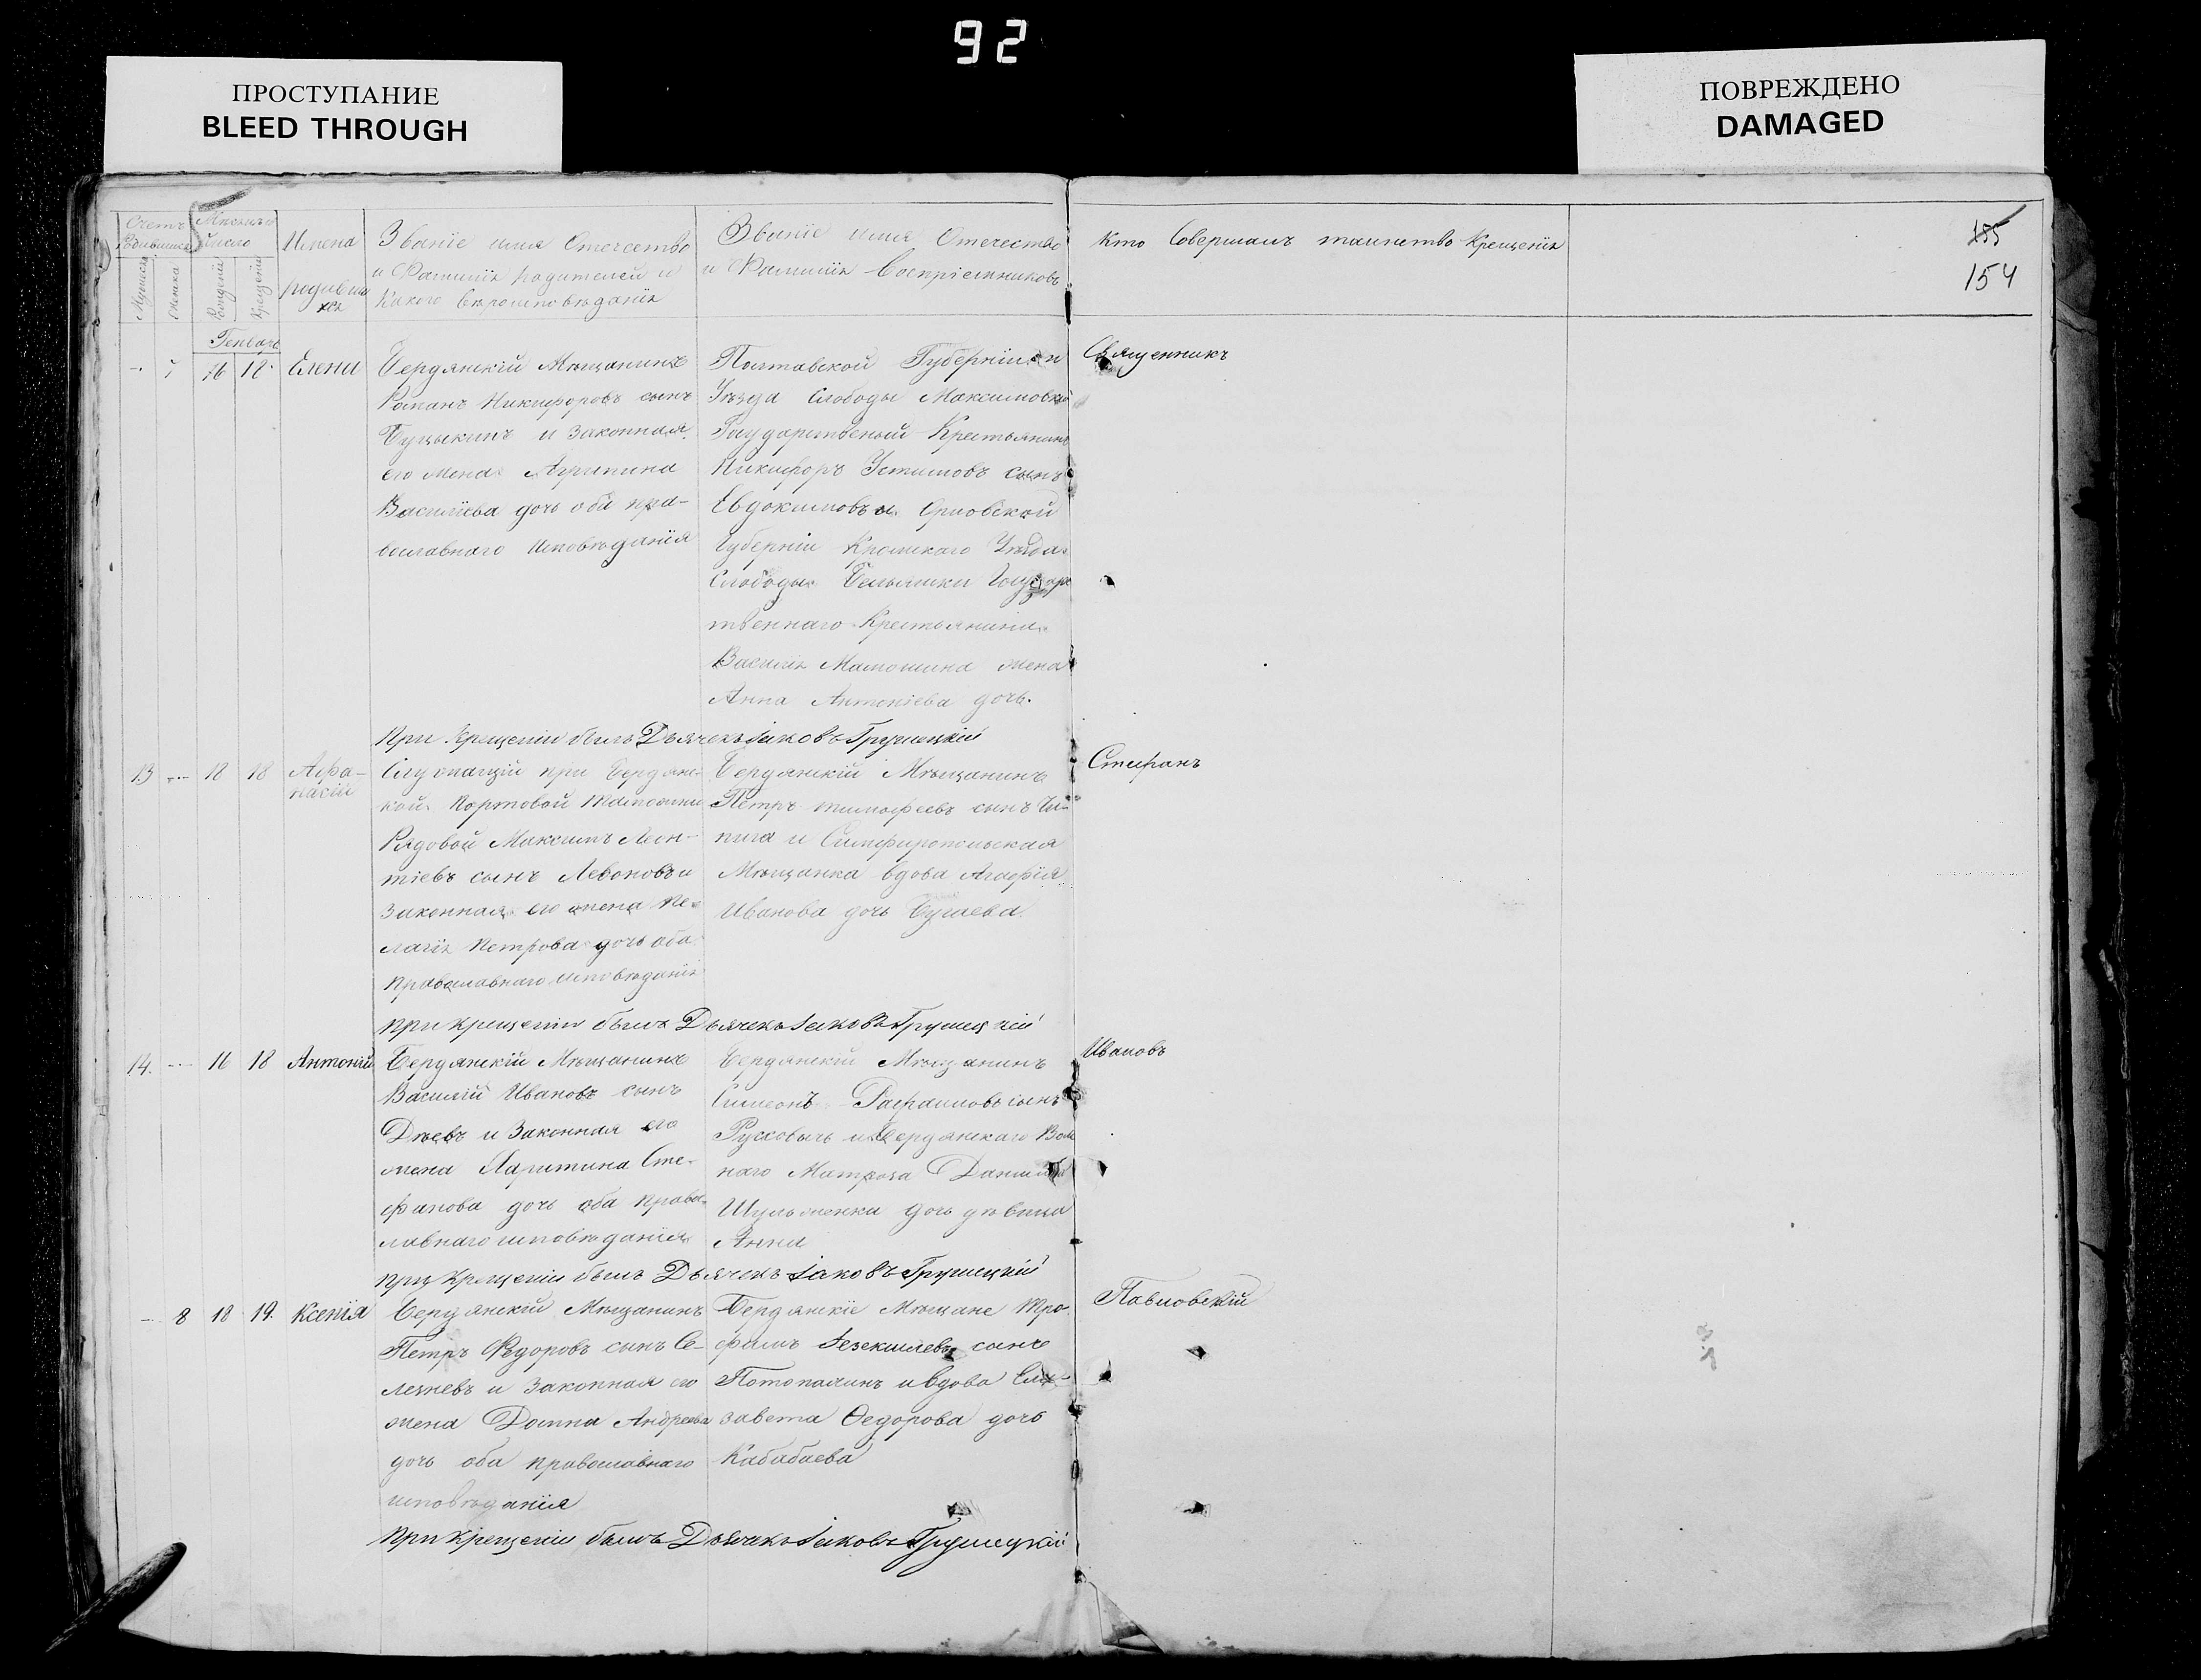 92
ПРОСТУПАНИЕ
BLEED THROUGH
ПОВРЕЖДЕНО
DAMAGED
185
154
Счетъ
Мужеска
Женска
Рожденія
Крещенія
Имена
Званіе имя Отечество
и Фамилія родителей и
Какого вѣроисповѣданія
Званіе имя Отечество
и Фамилія Воспріемниковъ
Кто Совершалъ таинство Крещенія
Генварь
7 16 18 Елена
Бердянскій Мѣщанинъ
Романъ Никифоровъ сынъ
и законная
его жена Агрипина
Василіева дочь оба пра-
вославнаго исповѣданія
Полтавской Губерніи и
Уѣзда Слободы Максимовки
Государственый Крестьянинъ
Никифоръ Устимовъ сынъ
Евдокимовъ и Орловской
Губерніи Уѣзда
Слободы
твеннаго Крестьянина
Василія жена
Анна Антоніева дочь.
При Крещеніи былъ Дьячекъ Іаковъ Грушецкій
13 18 18 Афа-
насій
Служащій при Бердянс-
кой Портовой таможни
Рядовой Максимъ Леон-
тіевъ сынъ Левоновъ и
законная его жена Пе-
лагія Петрова дочь оба
православнаго исповѣданія
Бердянскій Мѣщанинъ
Петръ тимофеевъ сынъ Че-
пига и Симферопольская
Мѣщанка вдова Агафія
Иванова дочь
При крещеніи былъ Дьячекъ Іаковъ Грушецкій
14. 16 18 Антоній
Бердянскій Мѣщанинъ
Василій Ивановъ сынъ
и Законная его
жена Харитина Сте-
фанова дочь оба право-
лавнаго исповѣданія
Бердянскій Мѣщанинъ
Симеонъ сынъ
и Бердянскаго Воль
наго Матроза Даниила
дочь дѣвица
Анна
При Крещеніи былъ Дьячекъ Іаковъ Грушецкій
8 18 19. Ксенія
Бердянскій Мѣщанинъ
Петръ Федоровъ сынъ Се-
лезневъ и Законная его
жена Домна Андреева
дочь оба православнаго
исповѣданія
Бердянскіе Мѣщане Тро-
фимъ Іезекіилевъ сынъ
Потопалинъ и вдова Ели-
завета Ѳедорова дочь
Кабабаева
При Крещеніи былъ Дьячекъ Іаковъ Грушецкій
Священникъ
Стефанъ
Ивановъ
Павловскій